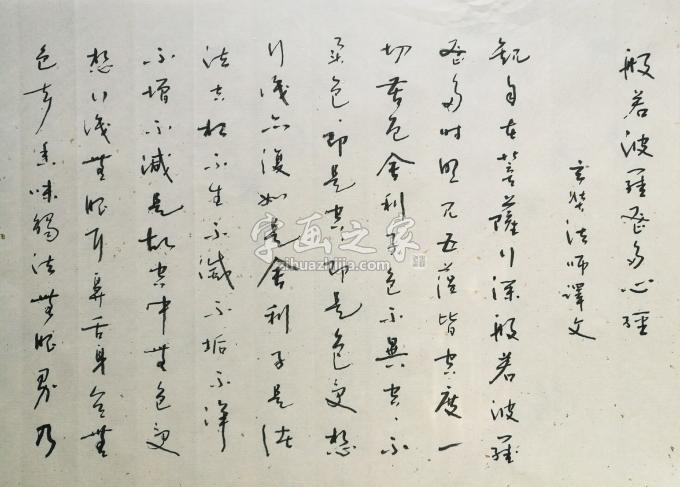 般若波羅蜜多心經
玄奘法師譯文
觀自在菩薩行深般若波羅
蜜多時照見五蘊皆空度一
切苦厄舍利子色不異空々不
異色々即是空々即是色受想
行識亦復如是舍利子是諸
法空相不生不滅不垢不淨
不增不減是故空中無色受
想行識無眼耳鼻舌身意無
色聲香味觸法無眼界乃
字画之家
zihuazhijia.com